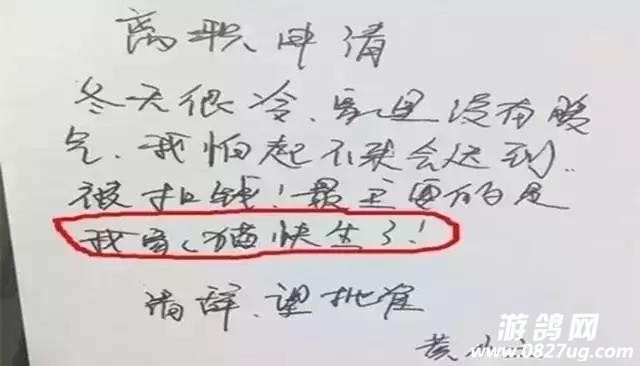 离职申请
冬天很冷、家里没有暖
气、我怕起不来会迟到、
被扣钱！最主要的是
我家猫快生了！
请辞、望批准
黄
游鸽网
www.0827ug.com